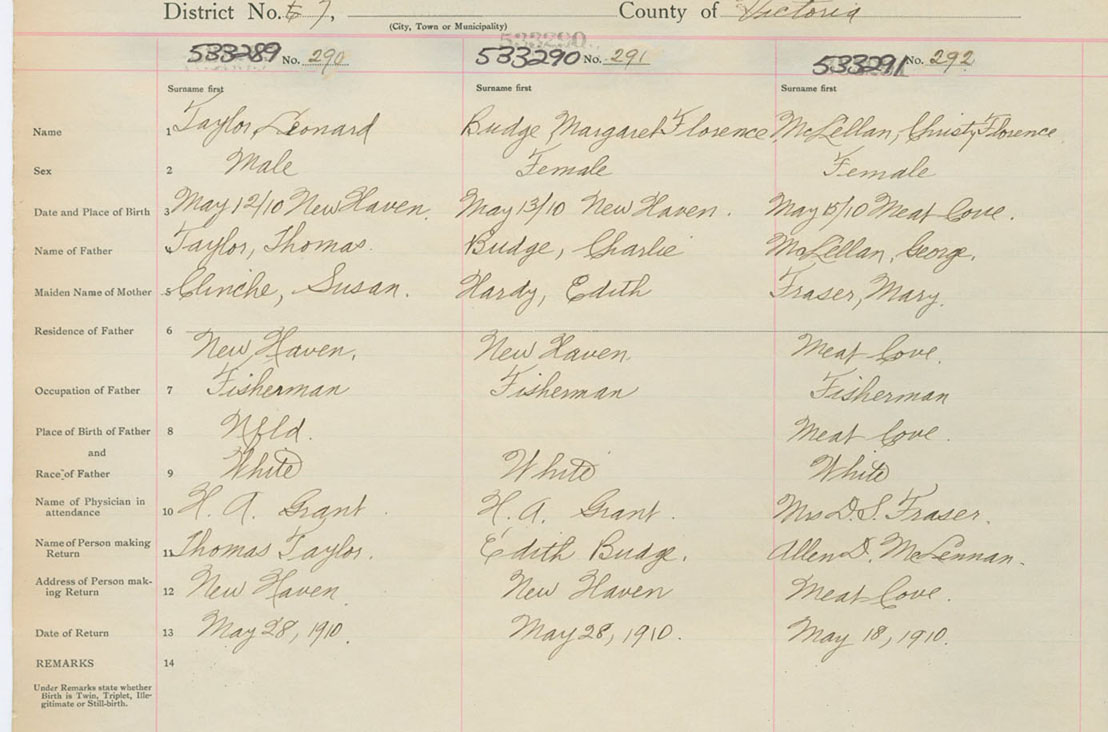 District No. 7, County of Victoria
(City, Town or Municipality)
533290
533289 No. 290 533290 No. 291 533291 No. 292
Surname first Surname first Surname first
Name 1 Taylor, Leonard Budge, Margaret Florence McLellan, Christy Florence
Sex 2 Male Female Female
Date and Place of Birth 3 May 12/10 New Haven. May 13/10 New Haven. May 15/10 Meat Cove.
Name of Father Taylor, Thomas. Budge, Charlie McLellan, George.
Maiden Name of Mother 5 Clinche, Susan. Hardy, Edith Fraser, Mary.
Residence of Father 6
New Haven. New Haven. Meat Cove.
Occupation of Father 7 Fisherman Fisherman Fisherman
Place of Birth of Father 8 Nfld. Meat Cove.
and
Race of Father 9 White White White
Name of Physician in attendance 10 H. A. Grant. H. A. Grant. Mrs D. S. Fraser.
Name of Person making Return 11 Thomas Taylor. Edith Budge. Allen D. McLennan.
Address of Person mak-ing Return 12 New Haven New Haven Meat Cove.
Date of Return 13 May 28, 1910. May 28, 1910. May 18, 1910.
REMARKS 14
Under Remarks state whether
Birth is Twin, Triplet, Ille-
gitimate or Still-birth.